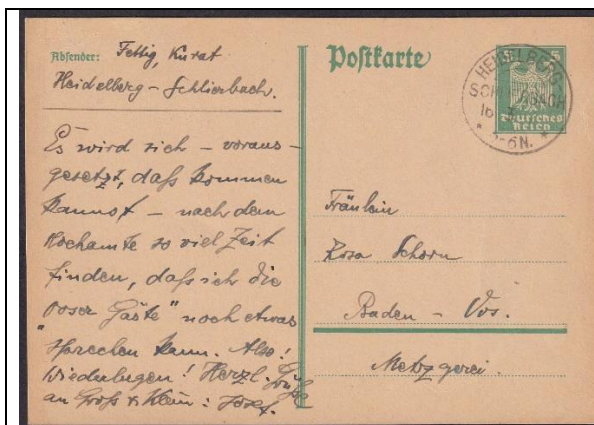 Absender: Fettig, Kurat
Heidelberg - Schlierbach.
Es wird sich - voraus-
gesetzt, daß kommen
kannst - nach dem
Hochamte so viel Zeit
finden, daß ich die
"Ooser Gäste" noch etwas
sprechen kann. Also!
Wiederlugen! Herzl. Grüße
an Groß & Klein: Josef.
Postkarte
HEIDELBERG
SCHLIERBACH
5-6N.
5
Deutsches
Reich
Fräulein
Rosa Schorn
Baden - Oos.
Metzgerei.